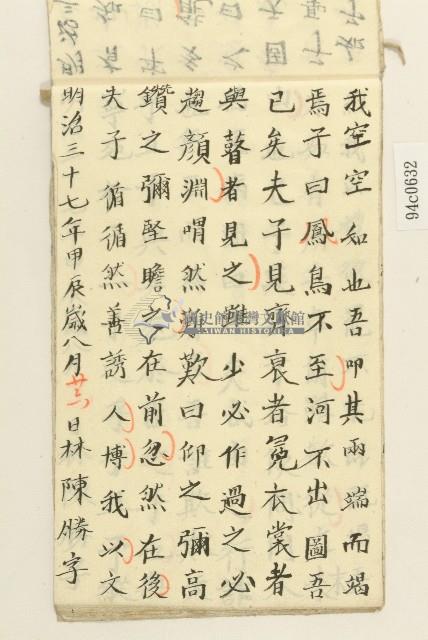 我空空知也吾叩其兩端而竭
焉子曰鳳鳥不至河不出圖吾
已矣夫子見齊衰者冕衣裳者
與瞽者見之雖少必作過之必
趨顏淵喟然歎曰仰之彌高
鑽之彌堅瞻之在前忽然在後
夫子循循然善誘人博我以文
明治三十七年甲辰歲八月廿六日林陳勝字
94c0632
國史館臺灣文獻館
TAIWAN HISTORICA